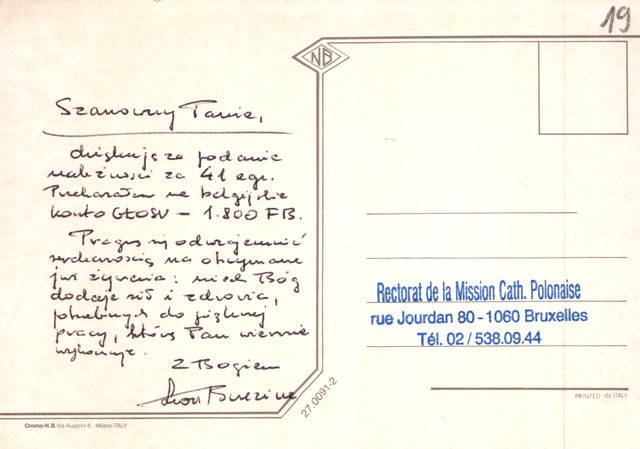 19
NB
Szanowny Panie,
dziękuję za podanie
należności za 41 egz.
Przekazałem na belgijskie
konto GŁOSU – 1.800 FB.
Pragnę odwzajemnić
serdecznością na otrzymane
już życzenia: niech Bóg
dodaje sił i zdrowia,
potrzebnych do
pracy, którą Pan wiernie
wykonuje.
Z Bogiem
27.0091-2
Cromo-N.B. Via Ausonio 6 - Milano ITALY
Rectorat de la Mission Cath. Polonaise
rue Jourdan 80 - 1060 Bruxelles
Tél. 02 / 538.09.44
PRINTED IN ITALY